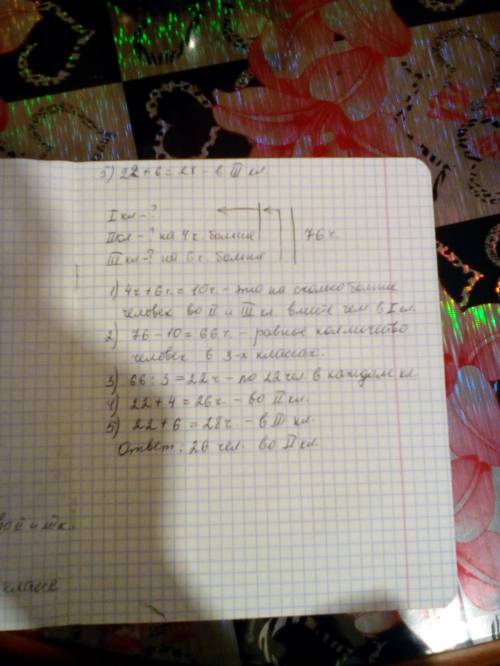 5) 22 + 6 = 28 - в III кл.
I кл - ?
II кл - ? на 4 ч больше
III кл - ? на 6 ч больше
76 ч.
1) 4ч + 6ч. = 10ч. - это на сколько больше
человек во II и III кл. вместе чем в I кл.
2) 76 - 10 = 66ч. - равное колличество
человек в 3-х классах.
3) 66 : 3 = 22ч - по 22 чел. в каждом кл.
4) 22 + 4 = 26ч. - во II кл.
5) 22 + 6 = 28ч. - в III кл.
Ответ: 26 чел. во II кл
II и III к.
классе